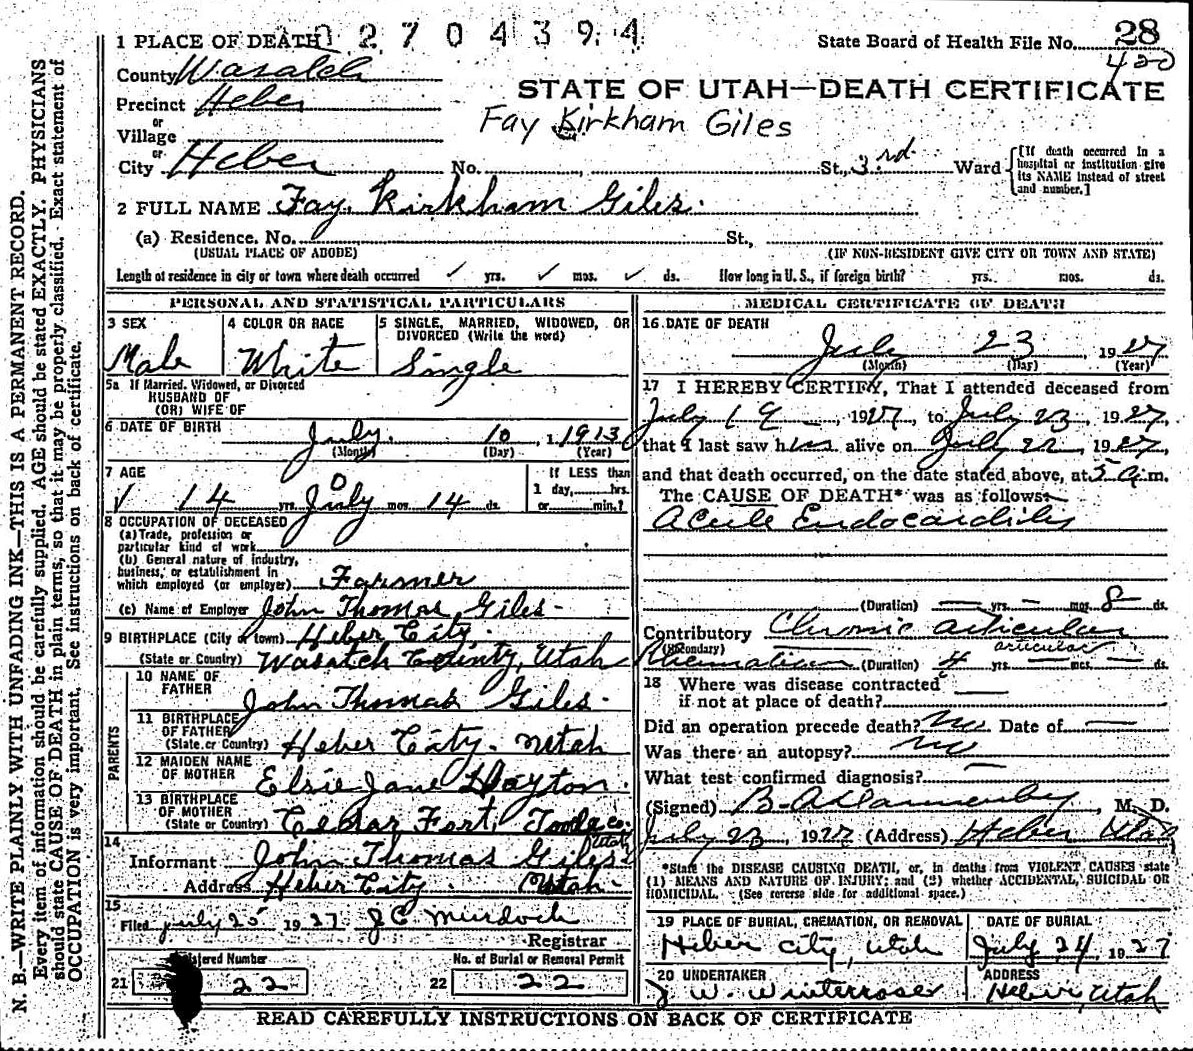 1 PLACE OF DEATH 0 2 7 0 4 3 9 4
State Board of Health File No. 28
420
County Wasatch
STATE OF UTAH—DEATH CERTIFICATE
Precinct Heber
or
Village
Fay Kirkham Giles
or
City Heber No. St., 3rd Ward
[If death occurred in a hospital or institution give its NAME instead of street and number.]
2 FULL NAME Fay Kirkham Giles.
(a) Residence. No. St.,
(USUAL PLACE OF ABODE) (IF NON-RESIDENT GIVE CITY OR TOWN AND STATE)
Length of residence in city or town where death occurred ✓ yrs. ✓ mos. ✓ ds. How long in U. S., if foreign birth? yrs. mos. ds.
PERSONAL AND STATISTICAL PARTICULARS
3 SEX
Male
4 COLOR OR RACE
White
5 SINGLE, MARRIED, WIDOWED, OR DIVORCED (Write the word)
Single
5a If Married, Widowed, or Divorced
HUSBAND OF
(OR) WIFE OF
6 DATE OF BIRTH July. 10, 1 1913
(Month) (Day) (Year)
7 AGE
✓ 14 yrs. 0 July mos. 14 ds.
If LESS than
1 day, hrs.
or min.?
8 OCCUPATION OF DECEASED
(a) Trade, profession or
particular kind of work
(b) General nature of industry,
business, or establishment in
which employed (or employer) Farmer
(c) Name of Employer John Thomas Giles-
9 BIRTHPLACE (City or town) Heber City.
(State or Country) Wasatch County, Utah
PARENTS
10 NAME OF
FATHER
John Thomas Giles.
11 BIRTHPLACE
OF FATHER
(State or Country) Heber City. Utah
12 MAIDEN NAME
OF MOTHER
Elsie Jane Dayton.
13 BIRTHPLACE
OF MOTHER
(State or Country) Cedar Fort, Tooele co.
Utah
14
Informant John Thomas Giles
Address Heber City. Utah.
15
Filed july 25 1927. J C Murdoch
Registrar
Registered Number
21 22
No. of Burial or Removal Permit
22 22
MEDICAL CERTIFICATE OF DEATH
16 DATE OF DEATH
July 23, 1927
(Month) (Day) (Year)
17 I HEREBY CERTIFY, That I attended deceased from
July 19, 1927, to July 23, 1927
that I last saw him alive on July 22, 1927,
and that death occurred, on the date stated above, at 5 a.m.
The CAUSE OF DEATH* was as follows:
Acute Endocarditis
(Duration) — yrs. — mos. 8 ds.
Contributory Chronic articular
(Secondary) articular
Rheumatism (Duration) 4 yrs. — mos. — ds.
18 Where was disease contracted
if not at place of death?
Did an operation precede death? No Date of —
Was there an autopsy? No
What test confirmed diagnosis? —
(Signed) , M. D.
July 23, 1927 (Address) Heber Utah
*State the DISEASE CAUSING DEATH, or, in deaths from VIOLENT CAUSES state
(1) MEANS AND NATURE OF INJURY; and (2) whether ACCIDENTAL, SUICIDAL OR
HOMICIDAL. (See reverse side for additional space.)
19 PLACE OF BURIAL, CREMATION, OR REMOVAL
Heber city, Utah
DATE OF BURIAL
July 24, 1927
20 UNDERTAKER
J W. Winterrose
ADDRESS
Heber Utah
READ CAREFULLY INSTRUCTIONS ON BACK OF CERTIFICATE
N. B.—WRITE PLAINLY WITH UNFADING INK—THIS IS A PERMANENT RECORD.
Every item of information should be carefully supplied. AGE should be stated EXACTLY. PHYSICIANS
should state CAUSE OF DEATH in plain terms, so that it may be properly classified. Exact statement of
OCCUPATION is very important. See instructions on back of certificate.